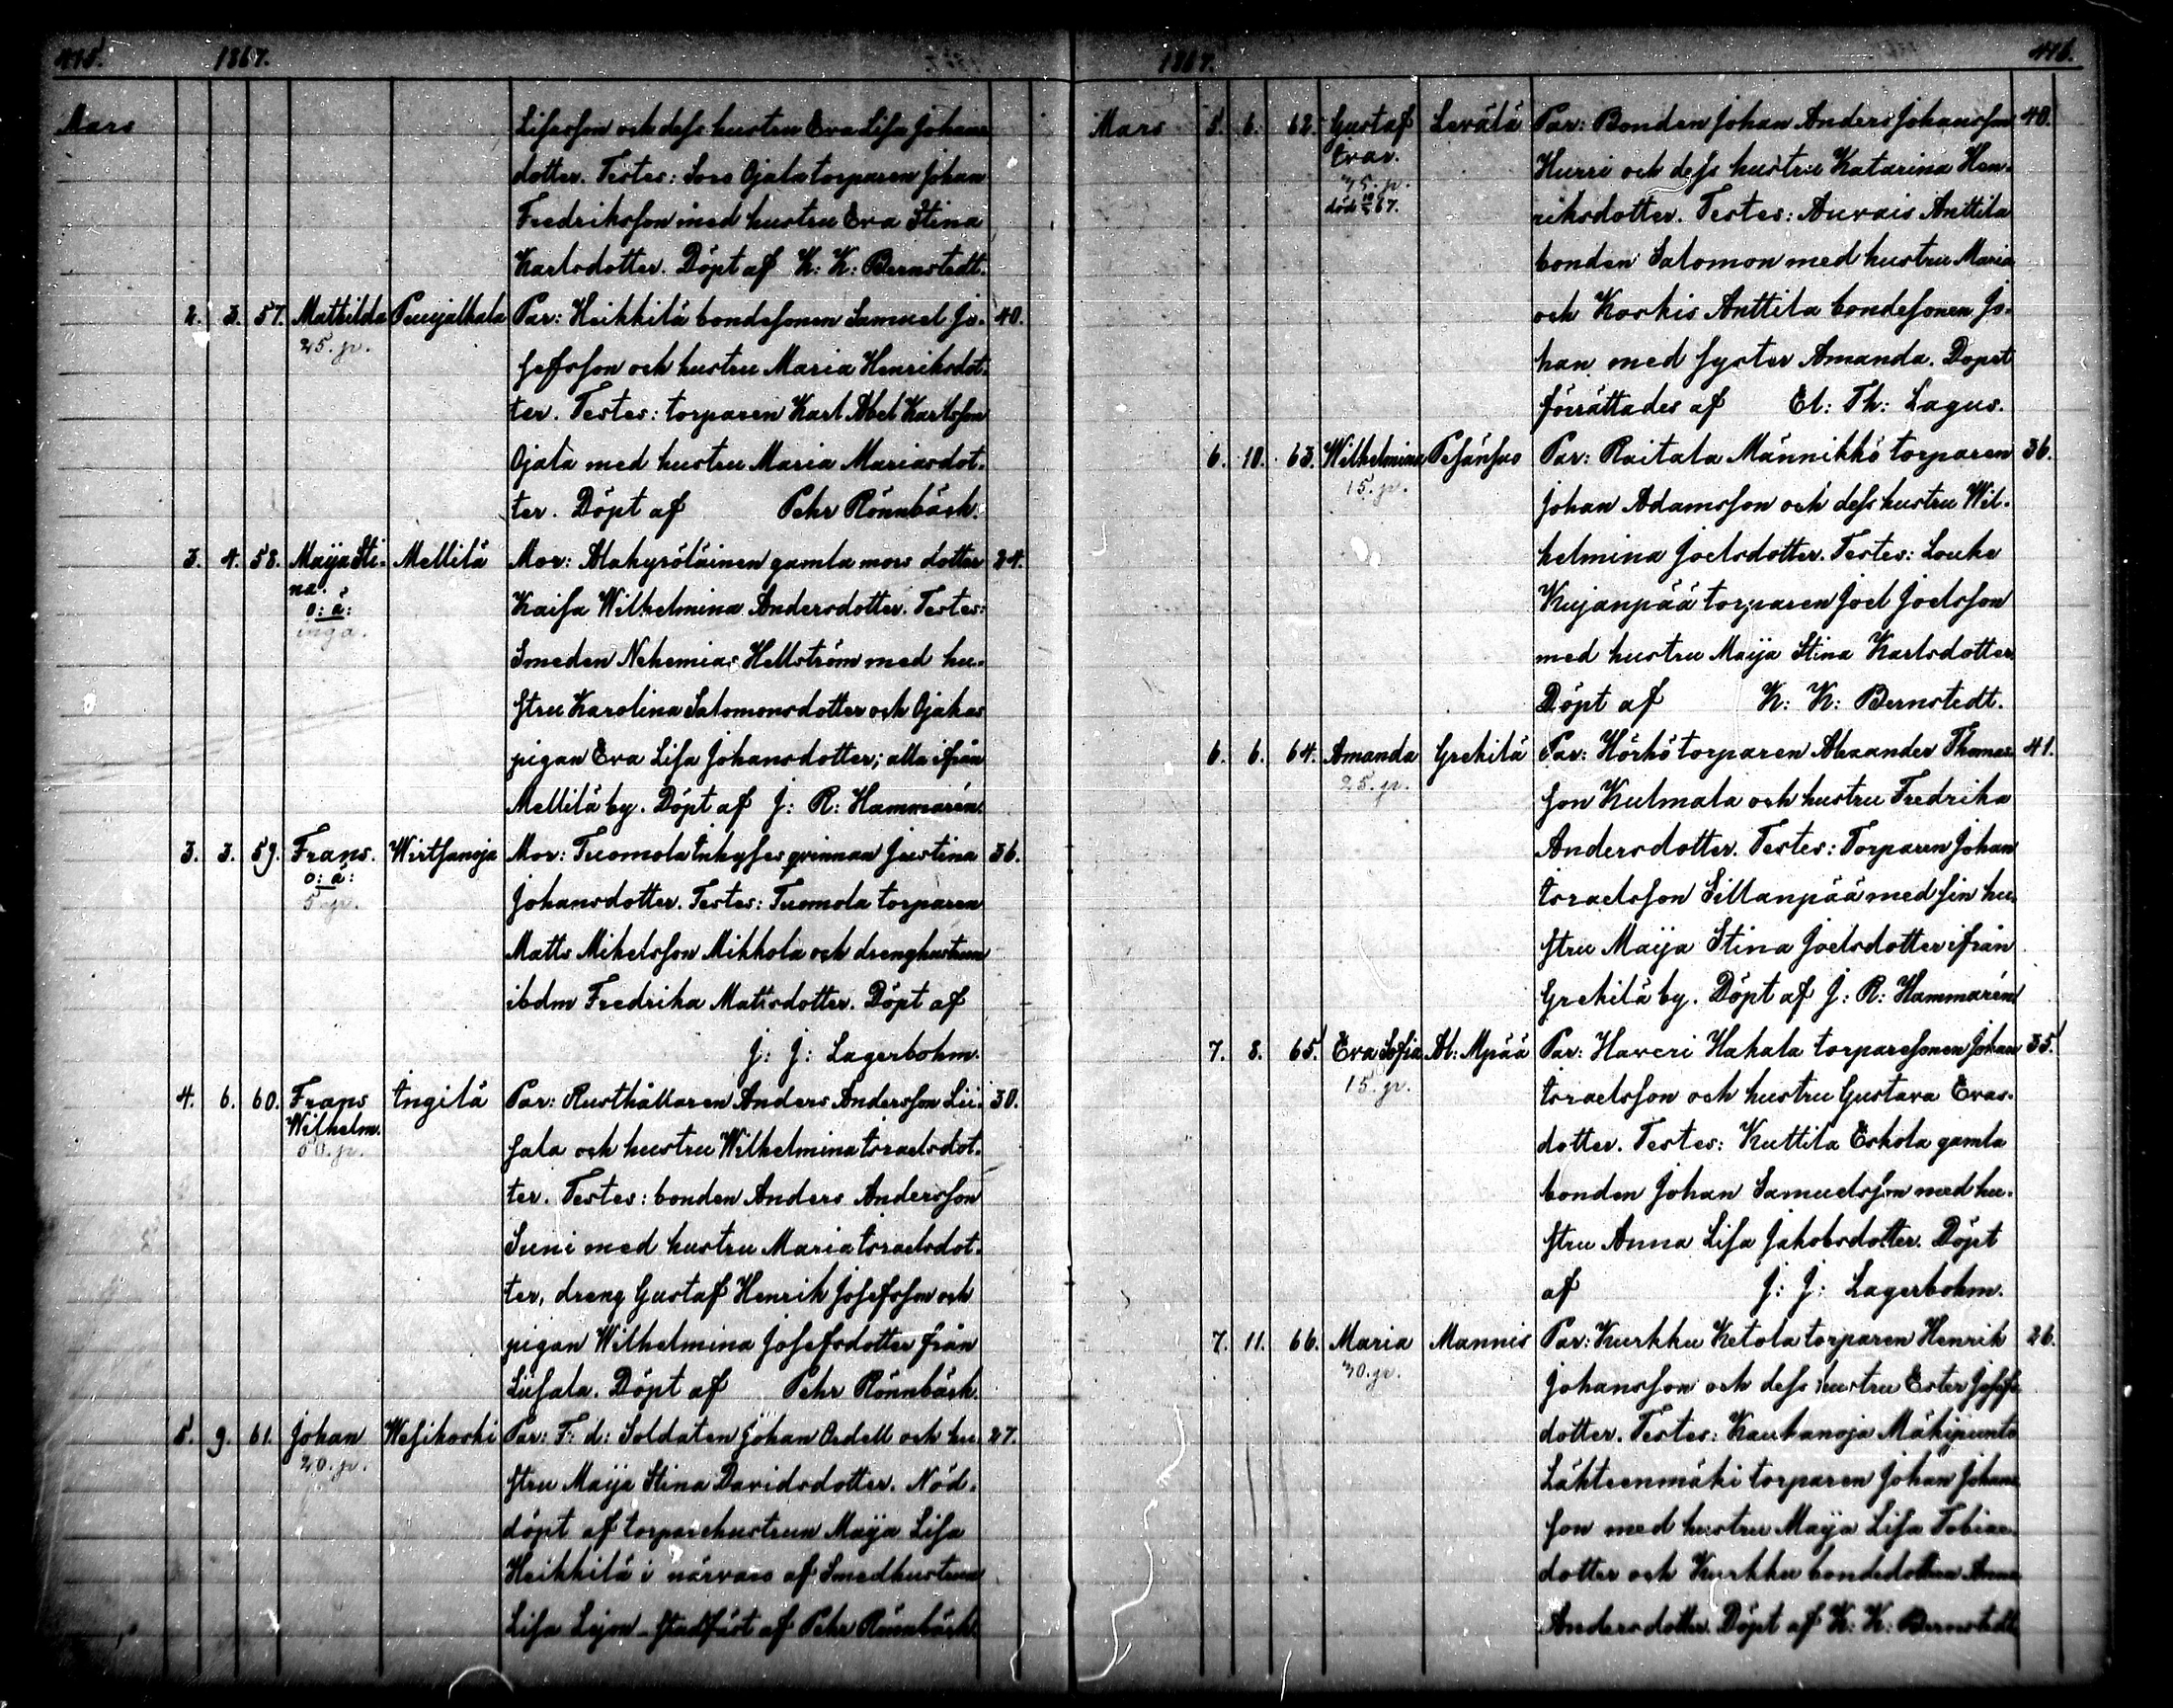 415. 1867.
Mars
Lisasson och dess hustru Eva Lisa Johans
dotter. Testes: Sors Ojala torparen Johan
Fredriksson med hustru Eva Stina
Karlsdotter. Döpt af K: K: Bernstedt.
2. 3. 57. Mathilda Punjalkala Par: Heikkilä bondesonen Samuel Jo- 40.
25. p. sefsson och hustru Maria Henriksdot-
ter. Testes: torparen Karl Abel Karlsson
Ojala med hustru Maria Mariasdot-
ter. Döpt af Pehr Rönnbäck.
3. 4. 58. Maija Sti- Mellilä Mor: Alakyröläinen gamla mors dotter 24.
na. Kaisa Wilhelmina Andersdotter. Testes:
o: ä:
inga. Smeden Nehemias Hellström med hu-
stru Karolina Salomonsdotter och Ojakas
pigan Eva Lisa Johansdotter; alla ifrån
Mellilä by. Döpt af J: R: Hammarén.
3. 3. 59. Frans. Wirtsanoja Mor: Tuomola Inhyses qvinnan Justina 36.
o: ä:
5 p. Johansdotter. Testes: Tuomola torparen
Matts Mikelsson Mikkola och drenghustrun
ibdm Fredrika Mattsdotter. Döpt af
J: J: Lagerbohm.
4. 6. 60. Frans Ingilä Par: Rusthållaren Anders Andersson Lii- 30.
Wilhelm. sala och hustru Wilhelmina Israelsdot-
50. p.
ter. Testes: bonden Anders Andersson
Suni med hustru Maria Israelsdot-
ter, dreng Gustaf Henrik Josefsson och
pigan Wilhelmina Josefsdotter från
Liisala. Döpt af Pehr Rönnbäck.
5. 9. 61. Johan Wesikoski Par: F: d: Soldaten Johan Ordell och hu- 27.
20. p. stru Maija Stina Davidsdotter. Nöd-
döpt af torparehustrun Maija Lisa
Heikkilä i närvaro af Smedhustrun
Lisa Lejon - stadfäst af Pehr Rönnbäck.
1867. 416.
Mars 5. 6. 62. Gustaf Levälä Par: Bonden Johan Anders Johansson 40.
Evar. Hurri och dess hustru Katarina Hen-
75. p.
död 67. riksdotter. Testes: Auvais Anttila
bonden Salomon med hustru Maria
och Korkis Anttila bondesonen Jo-
han med syster Amanda. Dopet
förrättades af El: Th: Lagus.
6. 10. 63. Wilhelmina Pesänsuo Par: Raitala Männikkö torparen 36.
15. p. Johan Adamsson och dess hustru Wil-
helmina Joelsdotter. Testes: Louke
Kujanpää torparen Joel Joelsson
med hustru Maija Stina Karlsdotter
Döpt af K: K: Bernstedt.
6. 6. 64. Amanda Grekilä Par: Hörkö torparen Alexander Thomas- 41.
25. p. son Kulmala och hustru Fredrika
Andersdotter. Testes: Torparen Johan
Israelsson Sillanpää med sin hu-
stru Maija Stina Joelsdotter ifrån
Grekilä by. Döpt af J: R: Hammarén
7. 8. 65. Eva Sofia Al: Mpää Par: Haveri Hakala torparesonen Johan 35.
15. p. Israelsson och hustru Gustava Evas-
dotter. Testes: Kuttila Eskola gamla
bonden Johan Samuelsson med hu-
stru Anna Lisa Jakobsdotter. Döpt
af J: J: Lagerbohm.
7. 11. 66. Maria Mannis Par: Kurkku Ketola torparen Henrik 26.
30. p. Johansson och dess hustru Ester Josefs
dotter. Testes: Kauhanoja Mäkipunto
Lähteenmäki torparen Johan Johans
son med hustru Maija Lisa Tobias-
dotter och Kurkku bondedottren Anna
Andersdotter. Döpt af K: K: Bernstedt